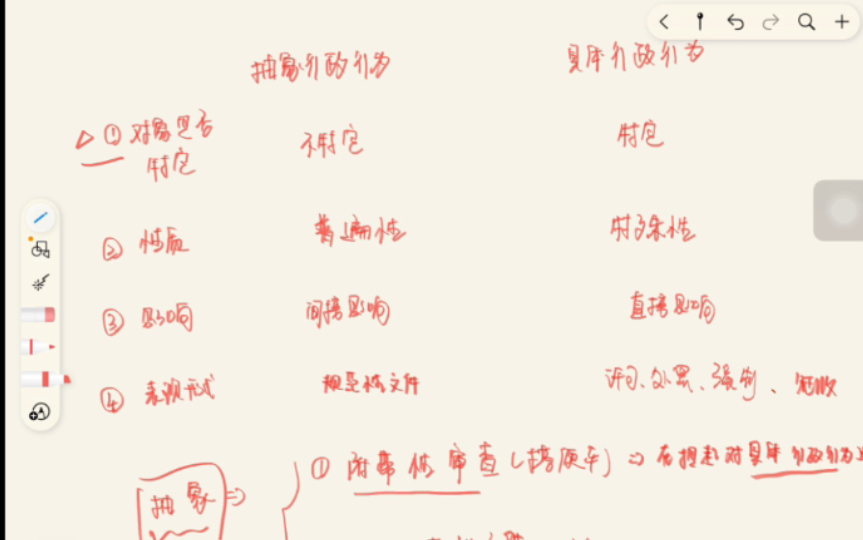 抽象行政行为 具体行政行为
① 对象是否 不特定 特定
特定
② 性质 普遍性 特殊性
③ 影响 间接影响 直接影响
④ 表现形式 规范性文件 许可、处罚、强制、
抽象 ⇒ ① 附带性审查(搭便车) ⇒ 在提起对具体行政行为